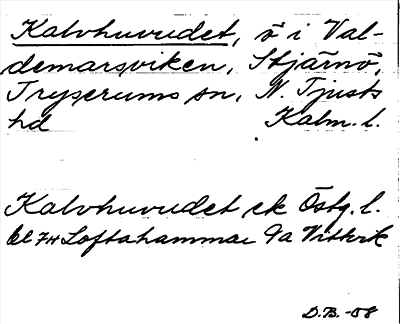 Kalvhuvudet, ö i Val-
demarsviken, Stjärnö,
Tryserums sn, N. Tjusts
hd Kalm. l.
Kalvhuvudet ek Östg. l.
bl 74 Loftahammar 9a Vitvik
D.B. -08